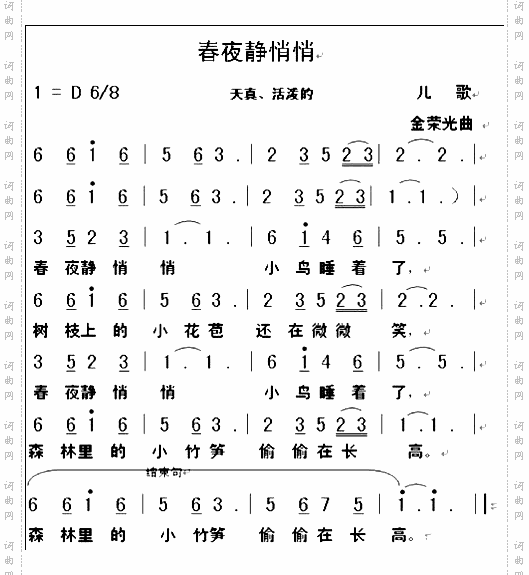 春夜静悄悄
1 = D 6/8 天真、活泼的 儿 歌
金荣光曲
6 6 i 6 | 5 6 3 . | 2 3 5 2 3 | 2 . 2 . |
6 6 i 6 | 5 6 3 . | 2 3 5 2 3 | 1 . 1 . ）
3 5 2 3 | 1 . 1 . | 6 i 4 6 | 5 . 5 . |
春 夜静 悄 悄 小 鸟 睡 着 了，
6 6 i 6 | 5 6 3 . | 2 3 5 2 3 | 2 . 2 . |
树 枝上 的 小 花 苞 还 在 微 微 笑，
3 5 2 3 | 1 . 1 . | 6 i 4 6 | 5 . 5 . |
春 夜静 悄 悄 小 鸟 睡 着 了，
6 6 i 6 | 5 6 3 . | 2 3 5 2 3 | 1 1 . |
森 林里 的 小 竹 笋 偷 偷 在 长 高。
结束句
6 6 i 6 | 5 6 3 . | 5 6 7 5 | i . i . ||
森 林里 的 小 竹笋 偷 偷 在 长 高。
词曲网
词曲网
词曲网
词曲网
词曲网
词曲网
词曲网
词曲网
词曲网
词曲网